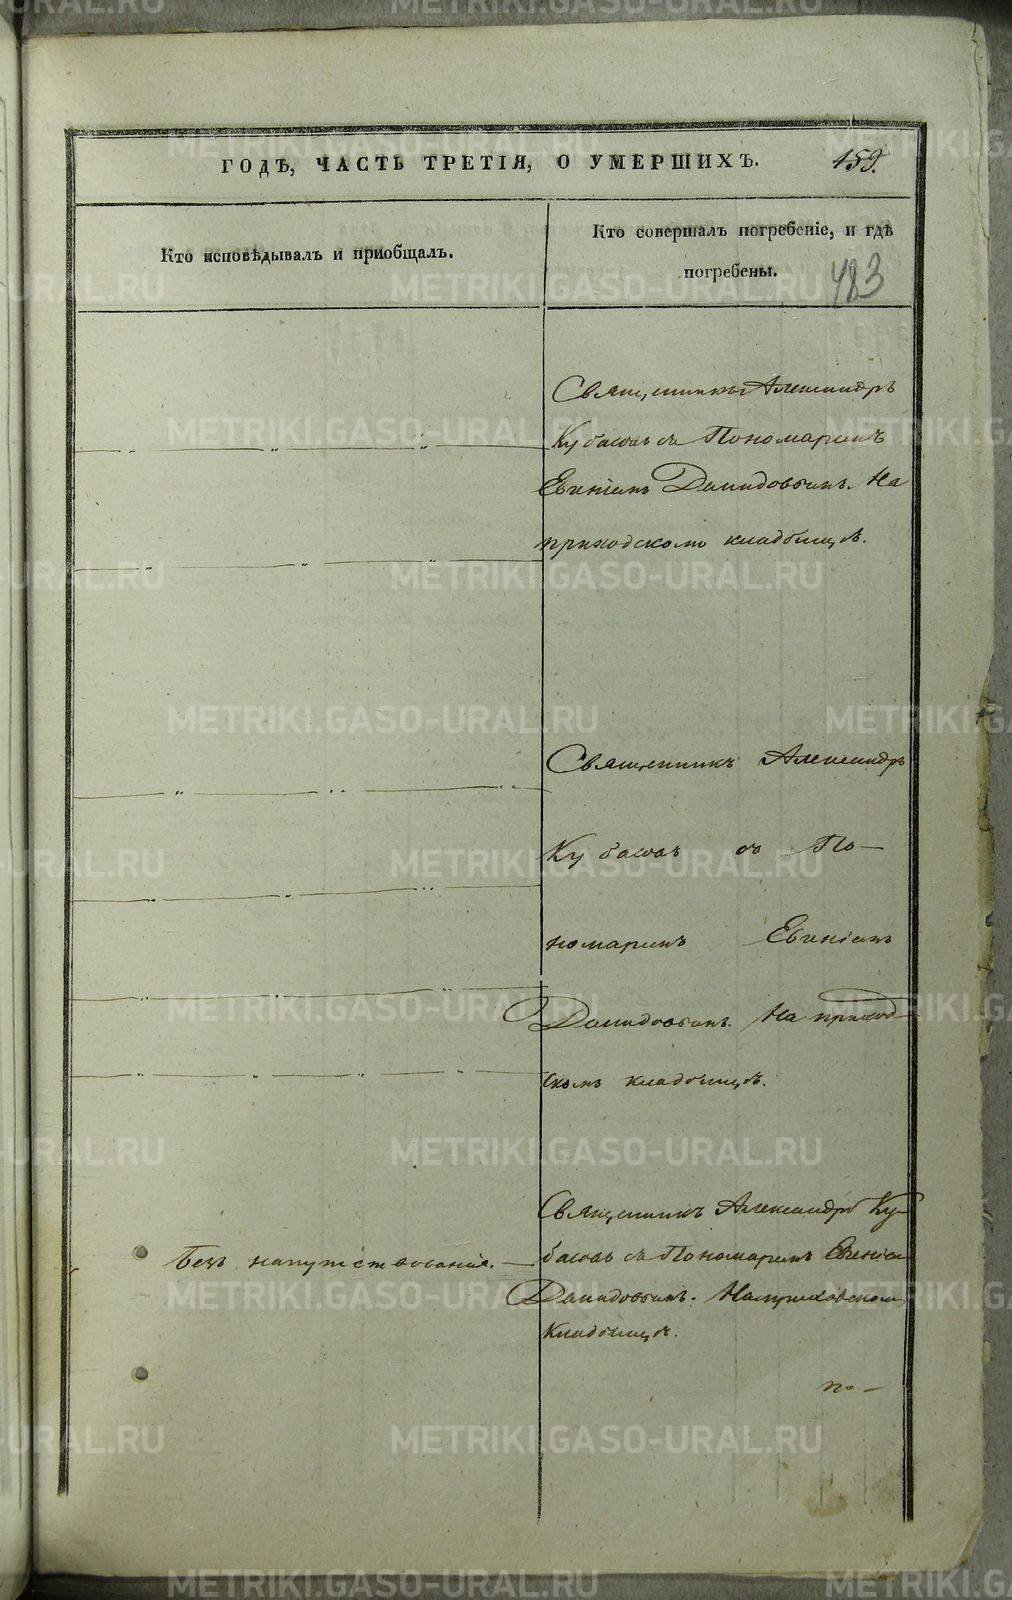 ГОДЪ, ЧАСТЬ ТРЕТІЯ, О УМЕРШИХЪ. 159.
Кто исповѣдывалъ и пріобщалъ.
Кто совершалъ погребеніе, и гдѣ
погребены. 483
Священникъ Александръ
Кубасовъ съ Пономаремъ
Евгеніемъ Давидовымъ. На
приходскомъ кладбищѣ.
Священникъ Александръ
Кубасовъ съ По-
номаремъ Евгеніемъ
Давидовымъ. На приход-
скомъ кладбищѣ.
Священникъ Александръ Ку-
Безъ напутствованія. — басовъ съ Пономаремъ
Давидовымъ. На приходскомъ
кладбищѣ.
по-
METRIKI.GASO-URAL.RU